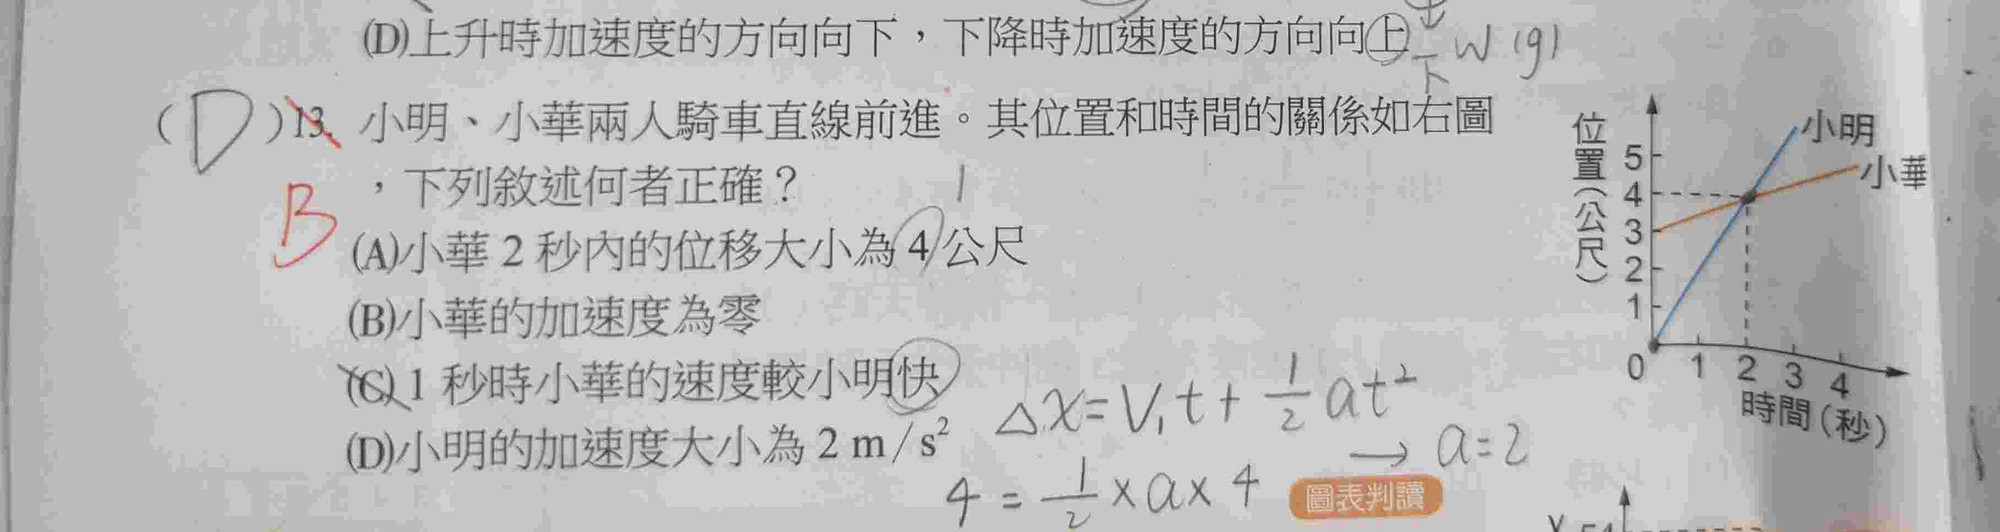 (D)上升時加速度的方向向下，下降時加速度的方向向上
下
W (g)
(D)13. 小明、小華兩人騎車直線前進。其位置和時間的關係如右圖
，下列敘述何者正確？
B
1
(A)小華 2 秒內的位移大小為 4 公尺
(B)小華的加速度為零
(C) 1 秒時小華的速度較小明快
(D)小明的加速度大小為 2 m/s²
△x=V₁t+½at²
4=½×a×4
→ a=2
圖表判讀
位置(公尺)
5
4
3
2
1
0
1 2 3 4
時間(秒)
小明
小華